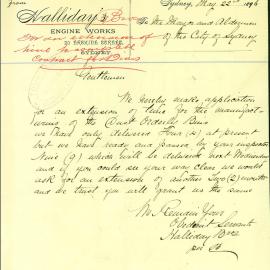 from
Halliday's Bros
ENGINE WORKS
SYDNEY
For an extension of
time to complete
Contract for Bins
Sydney, May 22nd 1896
To the Mayor and Aldermen
of the City of Sydney
Gentlemen
We hereby make application
for an extension of time for the manufact-
uring of the Dust Orderly Bins
we have only delivered Four (4) at present
but we have ready and passed by your inspector
Nine (9) which will be delivered next Wednesday
and if you could see your way clear we would
ask for an extension of another Two (2) months
and we trust you will grant us the same
We Remain Yours
Obedient Servants
Halliday Bros